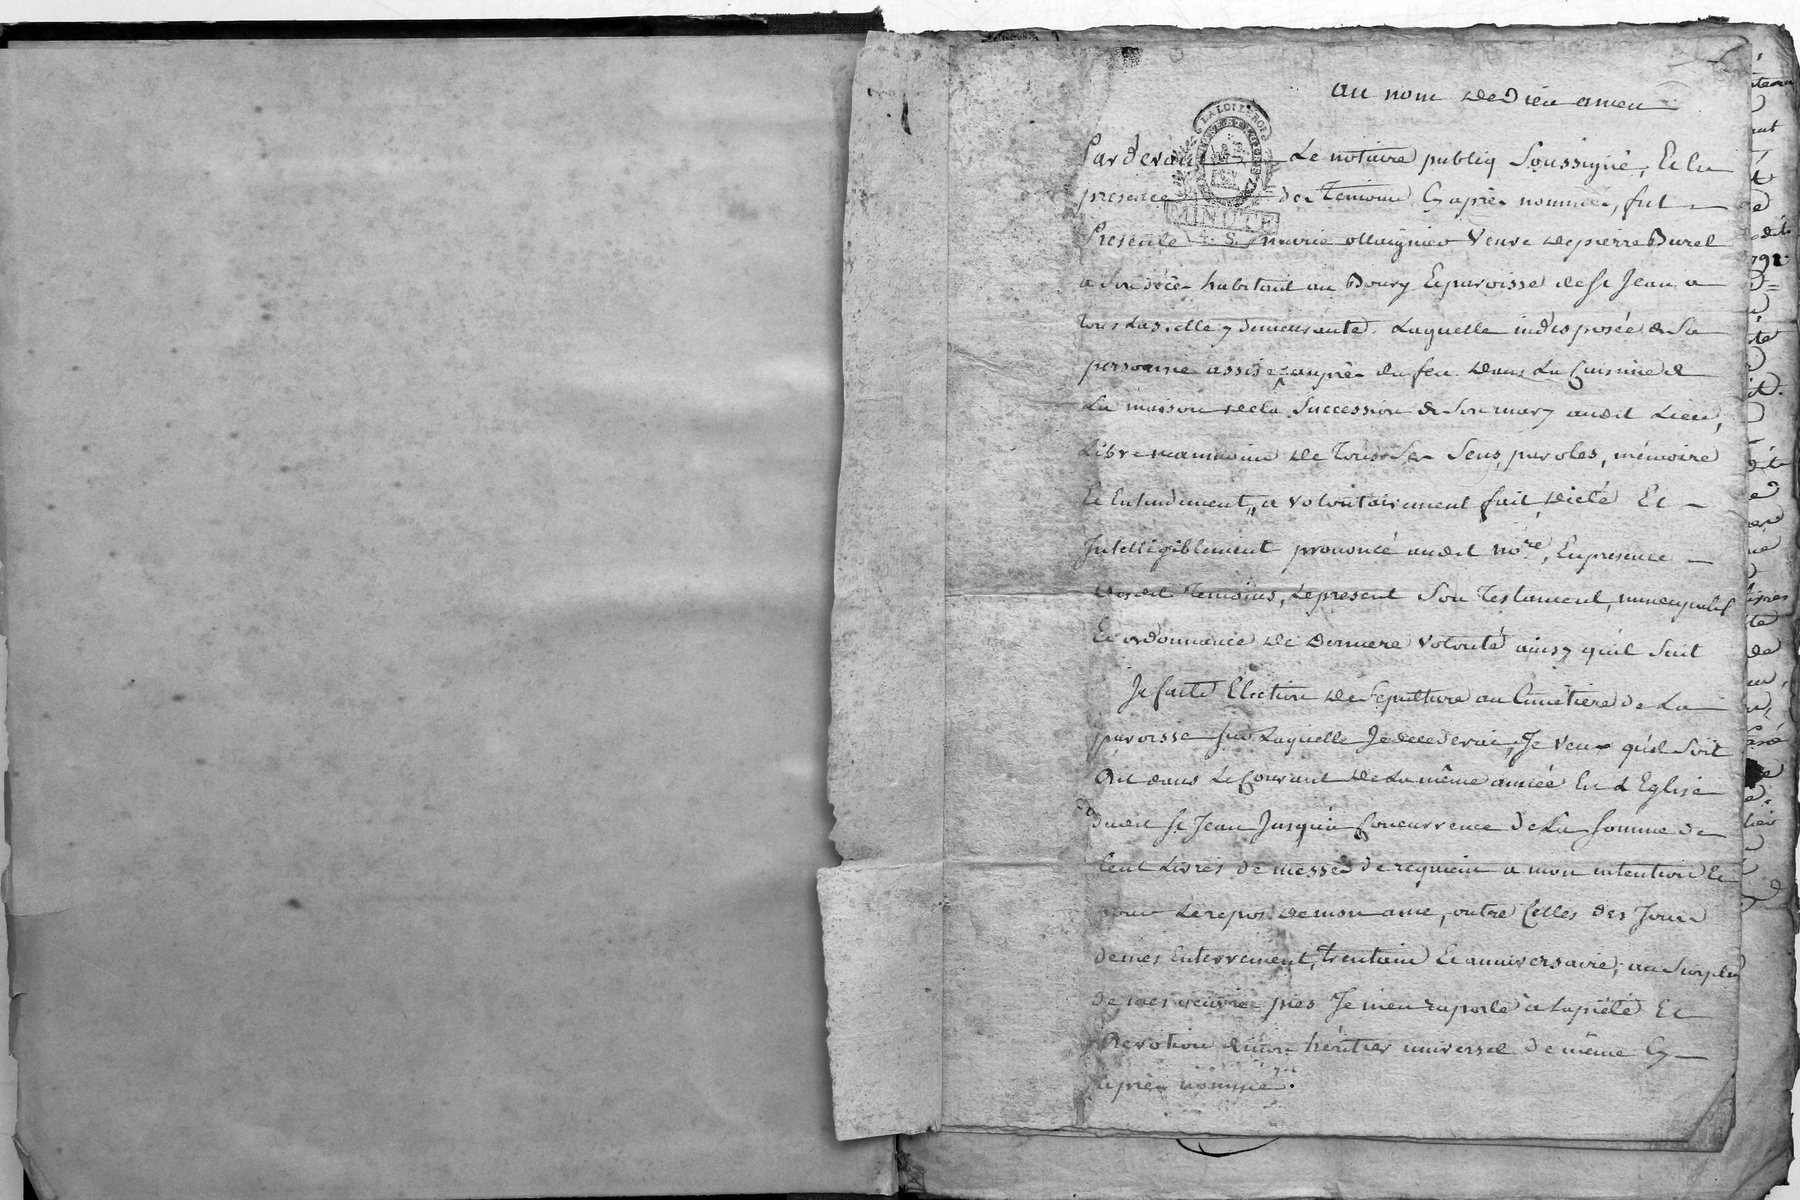 au nom de Dieu amen
Pardevant Le notaire publiq Soussigné, Et en
presence des Temoins Cy aprés nommés, fut
Presente marie Veuve de pierre Burel
a Son décès habitant au Bourg Et paroisse de St Jean a
elle y demeurante. Laquelle indisposée de Sa
personne assise auprès du feu dans La Cuisine de
La maison de la Succession de Son mary audit Lieu,
Libre neanmoins de Tous Ses Sens, paroles, mémoire
Et Entendement, a volontairement fait, dicté Et
Intelligiblement prononcé audit nore, En presence
desdit Temoins, Le present Son Testament, nuncupatif
Et ordonnance de derniere volonté ainsy qu'il Suit
Je faits Election de Sepulture au Cimetiere de La
paroisse Sur Laquelle Je decederai, Je veux qu'il Soit
Dit dans Le Courant de La même année En L'Eglise
dudit St Jean Jusqu'à Concurrence de La Somme de
Cent Livres de messes de requiem a mon intention Et
pour Le repos de mon ame, outre Celles des Jours
de mes Enterrement, trentain Et anniversaire, au Surplus
de mes œuvres pies Je m'en raporte à La piété Et
Devotion de mon héritier universel de même Cy
après nommé.
LA LOI ET LE ROI
MINUTE